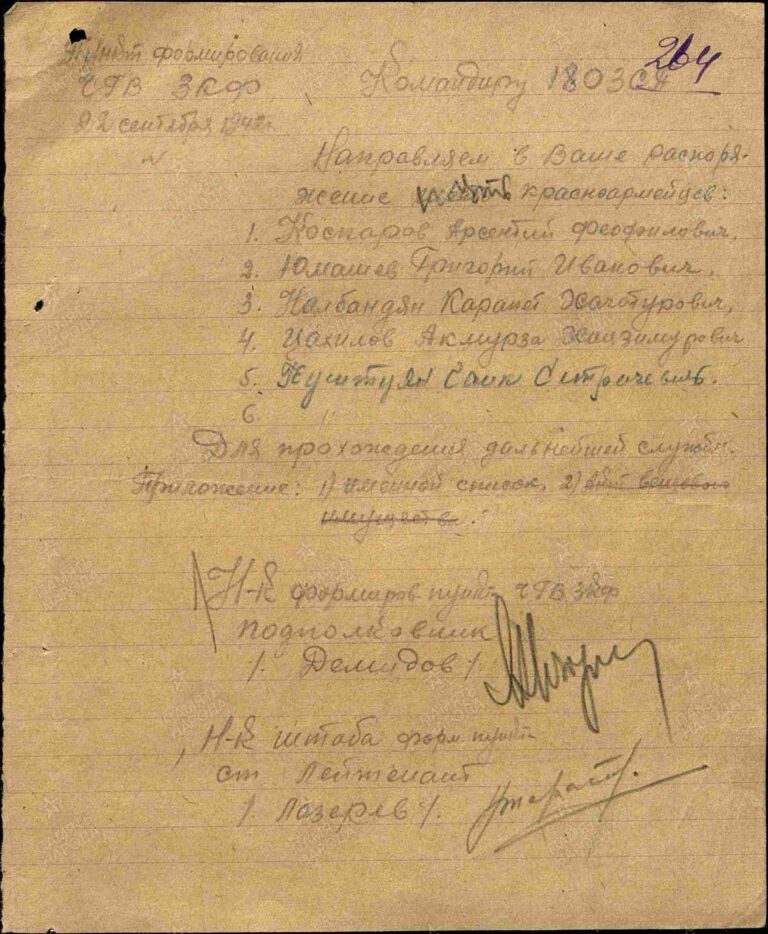 Пункт формирования
ЧГВ ЗКФ
22 сентября 1942г.
264
Командиру 180 ЗСП
Направляем в Ваше распоря-
жение красноармейцев:
1. Коспаров Арсентий Феофилович,
2. Юмашев Григорий Иванович,
3. Налбандян Карапет Хачатурович,
4. Цахилов Акмурза Хаџзимурович
5.
6.
Для прохождения дальнейшей службы.
Приложение: 1) именной список, 2) акт вещевого
имущества.
Н-к формиров пункта ЧГВ ЗКФ
подполковник
/. Демидов /.
Н-к штаба форм пункта
ст Лейтенант
/. Лазарев /.